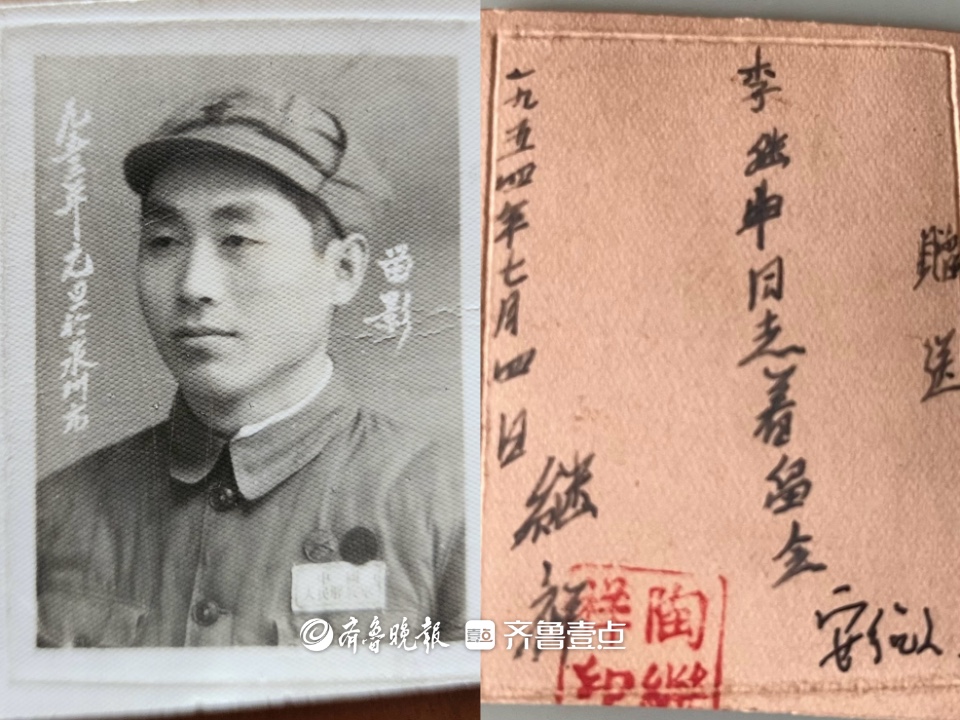 年元旦於泉州市
留影
中國
人民解放軍
贈送
李继申同志着留念
一九五四年七月四日
继祥
安徽
陶繼
祥印
齐鲁晚报
齐鲁壹点